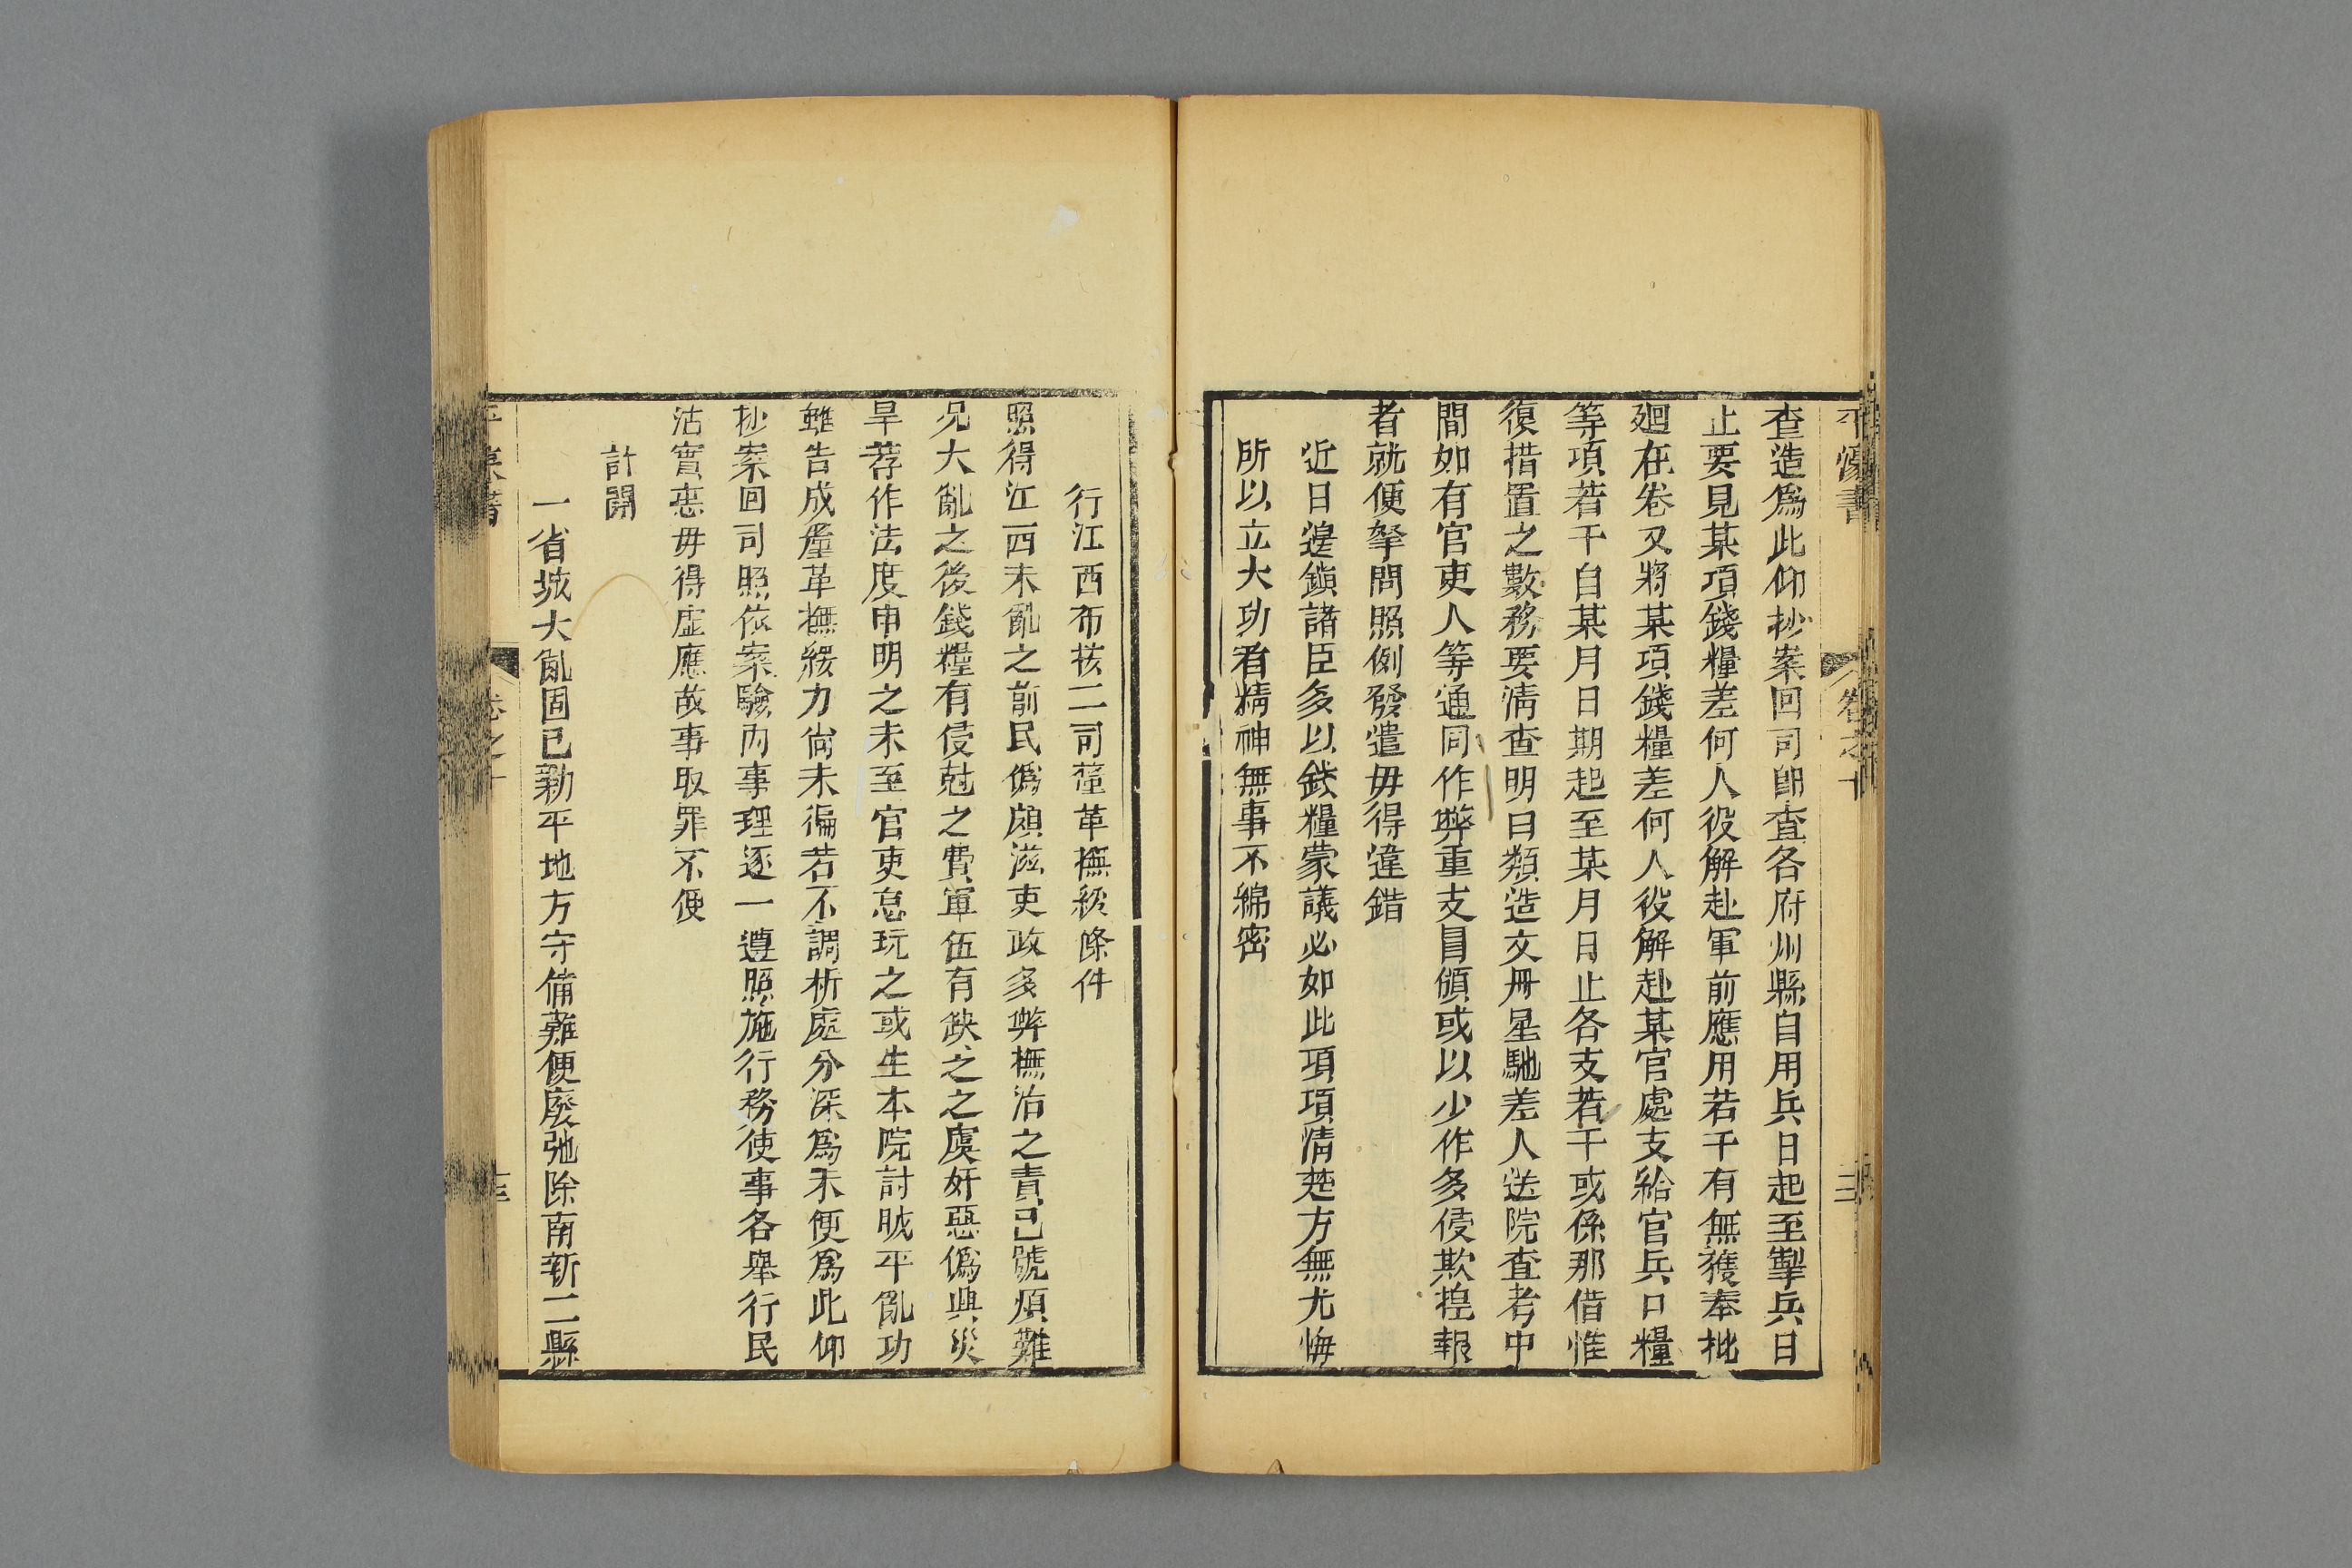 平濠書 卷之十
查造爲此仰抄案回司卽查各府州縣自用兵日起至掣兵日
止要見某項錢糧差何人役解赴軍前應用若干有無獲奉批
廻在卷又將某項錢糧差何人役解赴某官處支給官兵口糧
等項若干自某月日期起至某月日止各支若干或係那借惟
復措置之數務要淸查明白類造文冊星馳差人送院查考中
間如有官吏人等通同作弊重支冒領或以少作多侵欺揑報
者就便拏問照例發遣毋得違錯
近日邊鎭諸臣多以錢糧蒙議必如此項項淸楚方無尤悔
所以立大功者精神無事不綿密
行江西布按二司釐革撫綏條件
照得江西未亂之前民僞頗滋吏政多弊撫治之責已號煩難
况大亂之後錢糧有侵尅之費軍伍有缺乏之虞奸惡僞興災
旱荐作法度申明之未至官吏怠玩之或生本院討賊平亂功
雖告成釐革撫綏力尙未徧若不調析處分深爲未便爲此仰
抄案回司照依案驗內事理逐一遵照施行務使事各舉行民
沾實惠毋得虛應故事取罪不便
計開
一省城大亂固已勦平地方守備難便廢弛除南新二縣
卷之十